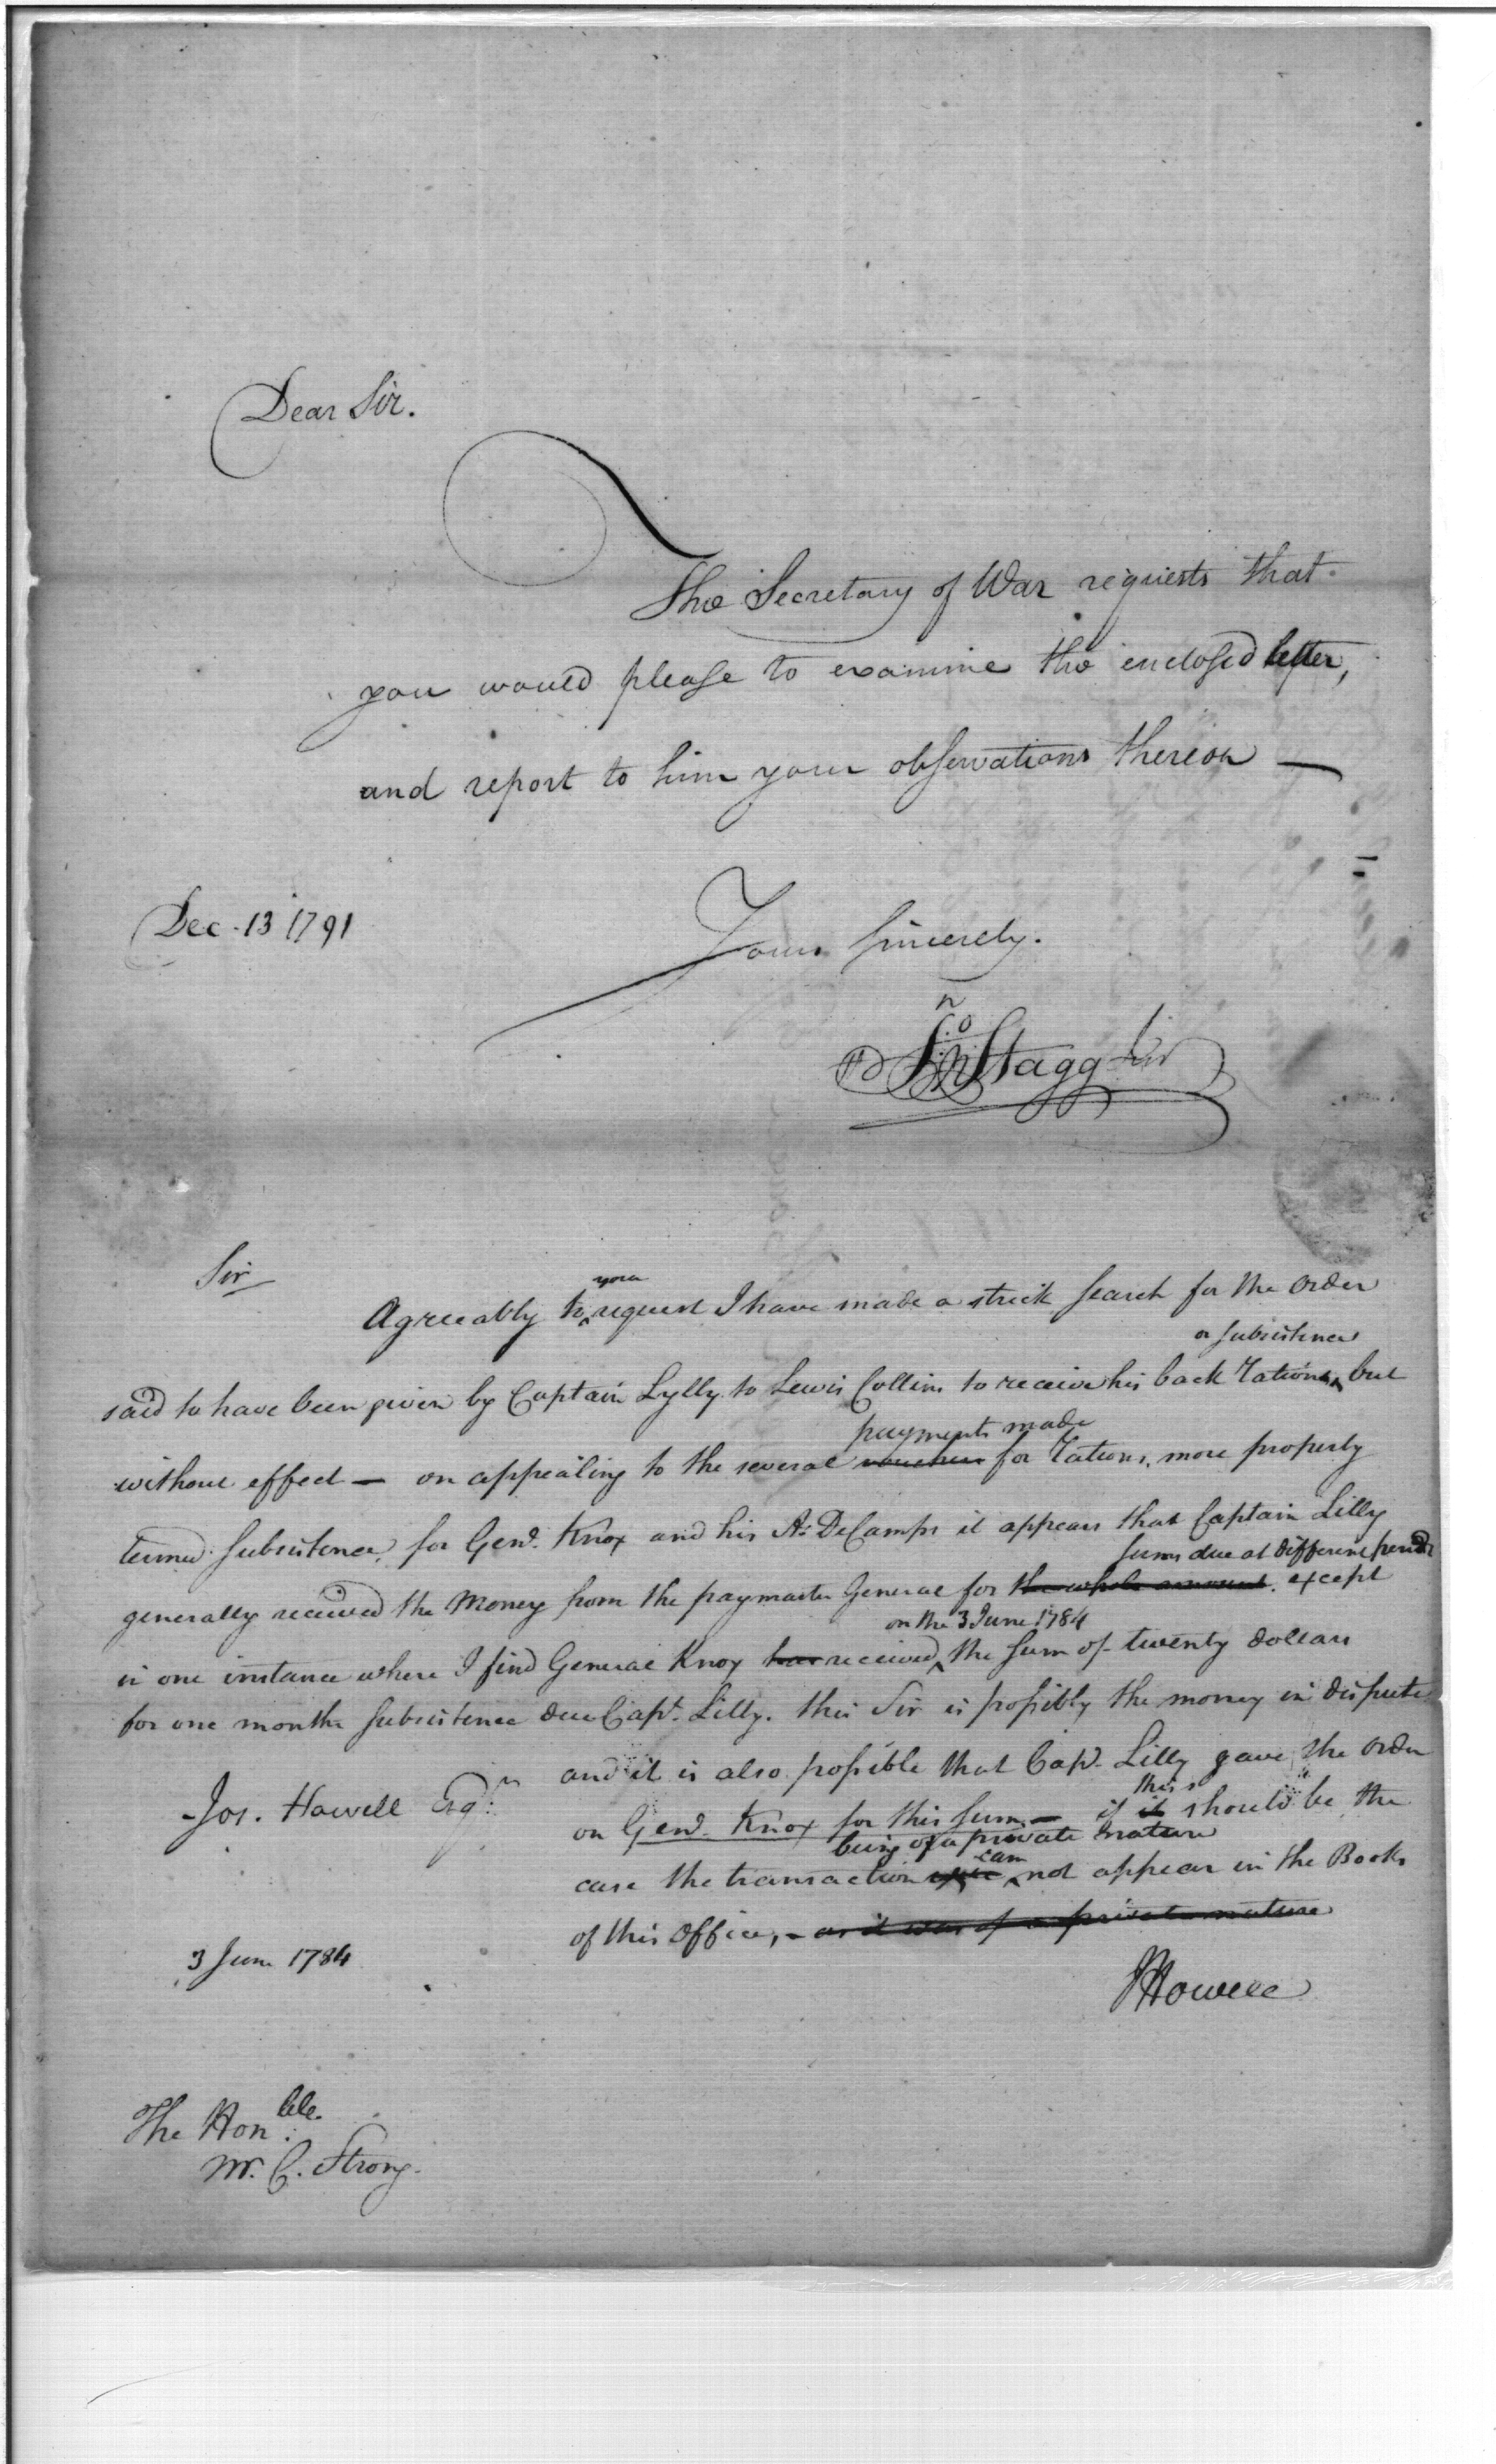 Dear Sir.
The Secretary of War requests that
you would please to examine the enclosed letter,
and report to him your observations thereon —
Dec. 13 1791
Yours sincerely.
Jno Stagg Jnr
Sir
your
Agreeably to request I have made a strict search for the order
or subsistence
said to have been given by Captain Lylly to Lewis Collins to receive his back rations but
payments made
without effect — on appealing to the several vouchers for rations, more properly
termed Subsistence, for Genl. Knox and his A: DeCamps it appears that Captain Lilly
sums due at different periods
generally received the Money from the paymaster General for the whole amount. except
on the 3 June 1784
in one instance where I find General Knox has received the sum of twenty dollars
for one months subsistence due Capt. Lilly. this Sir is possibly the money in dispute
and it is also possible that Capt. Lilly gave the order
Jos. Howell Esqr.
this
on Genl. Knox for this sum — if it should be the
being of a private nature
can
case the transaction not appear in the Books
of this office, - as it was of a private nature
3 June 1784
JHowell
The Honble.
Mr. C. Strong.